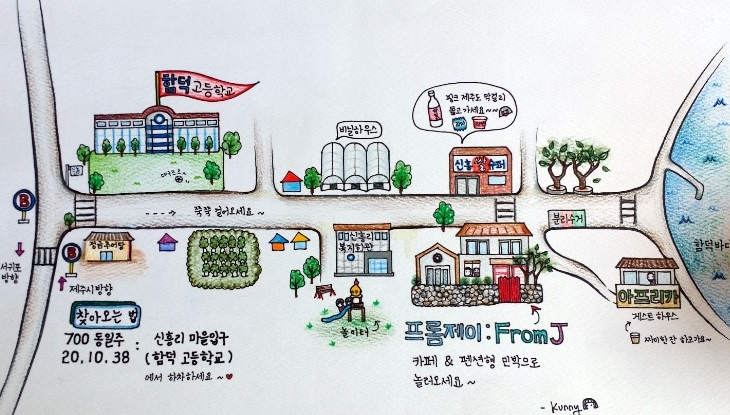 함덕 고등학교
비닐하우스
핑크 제주도 막걸리
물고 가세요~
신흥 슈퍼
B
---→ 쭉쭉 걸어오세요~
분리수거
서귀포
방향
B
제주시 방향
신흥리
복지회관
함덕바다
아프리카
게스트 하우스
놀이터
찾아오는 법
700 동일주 : 신흥리 마을입구
20.10.38 (함덕 고등학교)
에서 하차하세요~♥
프롬제이 : From J
카페 & 펜션형 민박으로
놀러오세요~
- Kunny